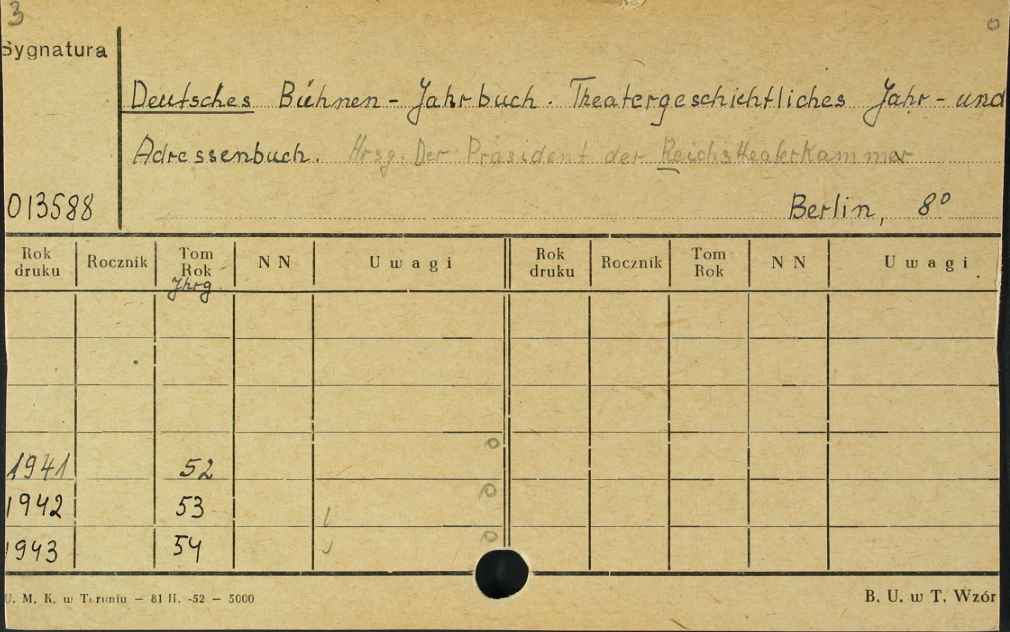 3
Sygnatura
Deutsches Bühnen - Jahrbuch. Theatergeschichtliches Jahr - und
Adressenbuch. Hrsg. Der Präsident der Reichstheaterkammer
013588 Berlin, 8°
Rok druku Rocznik Tom Rok NN Uwagi Rok druku Rocznik Tom Rok NN Uwagi
Jhrg.
1941 52
1942 53
1943 54
U. M. K. w Toruniu — 81 H. -52 — 5000 B. U. w T. Wzór